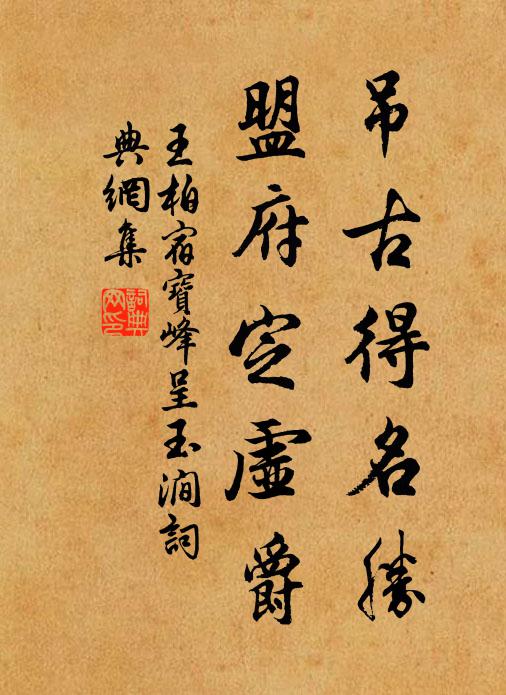 吊古得名勝
盟府定虛爵
王柏宿寶峰呈玉澗詞
典網集
詞典網印